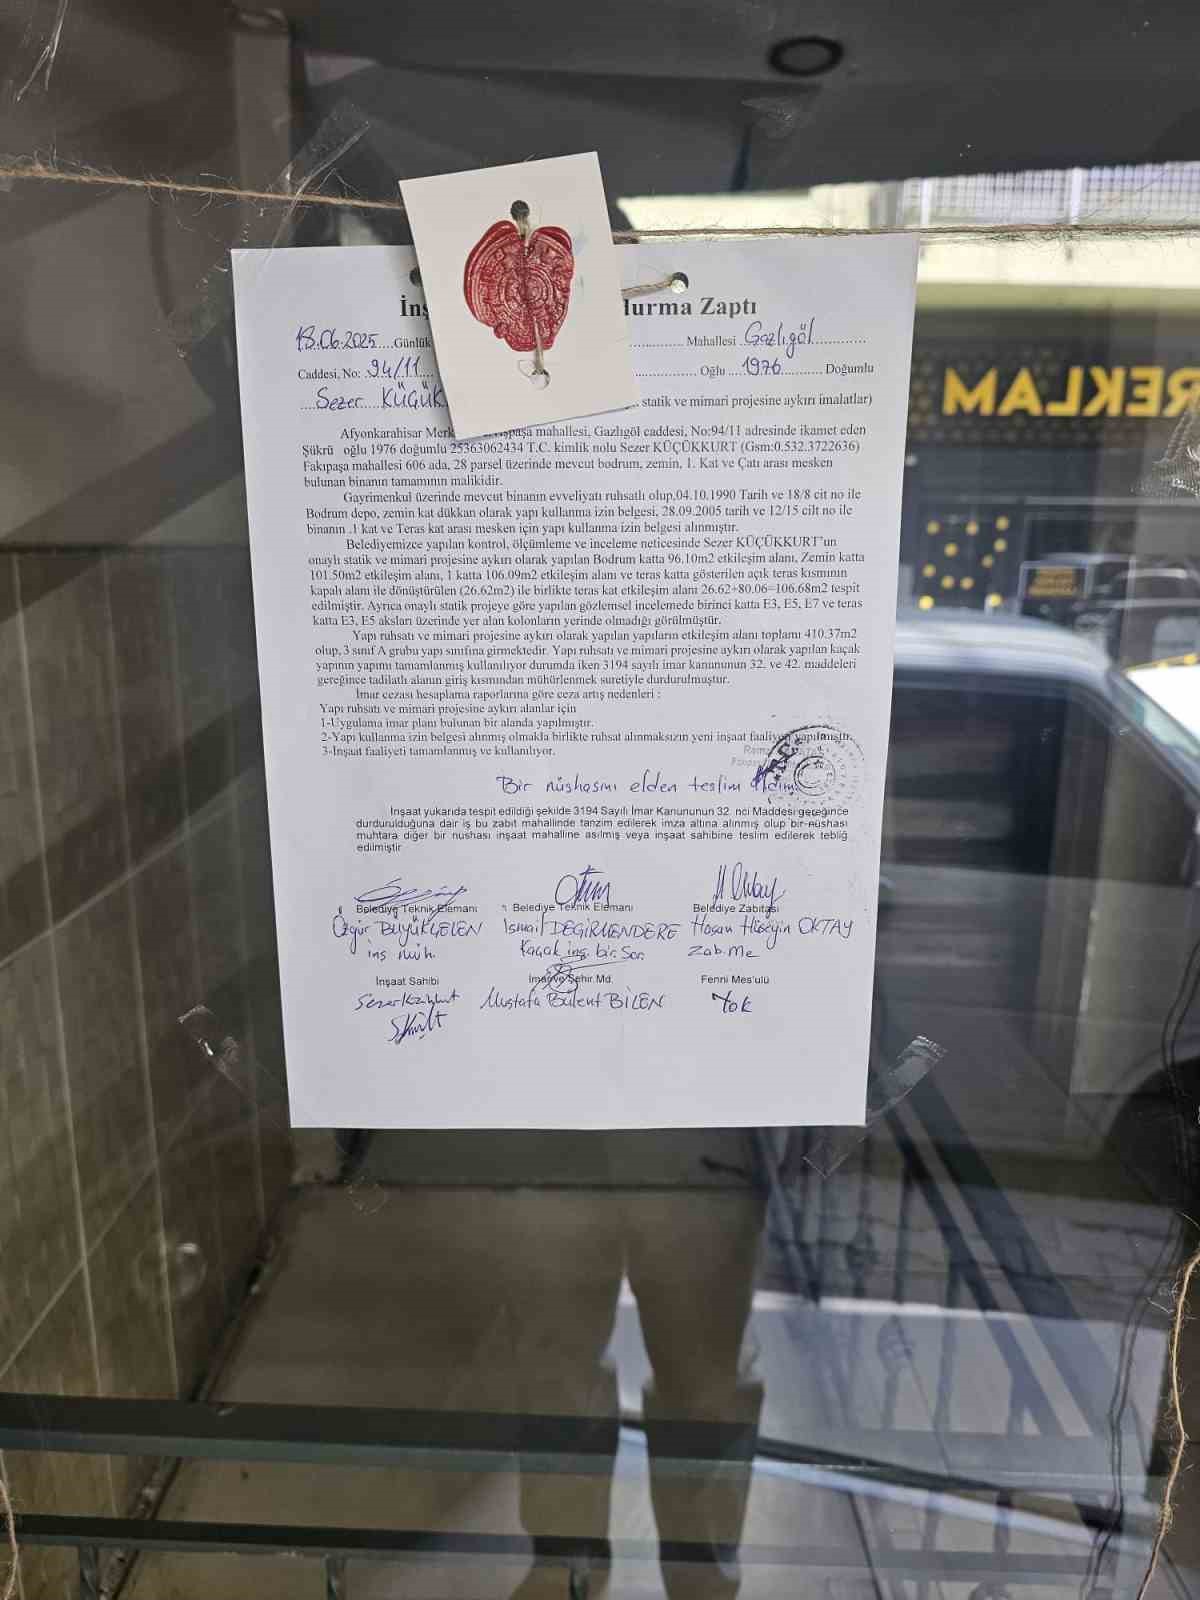 İnş durma Zaptı
18.06.2025 Günlük Mahallesi Gazlıgöl
Caddesi, No: 94/11 Oğlu 1976 Doğumlu
Sezer KÜÇÜK statik ve mimari projesine aykırı imalatlar)
Afyonkarahisar Merk paşa mahallesi, Gazlıgöl caddesi, No:94/11 adresinde ikamet eden
Şükrü oğlu 1976 doğumlu 25363062434 T.C. kimlik nolu Sezer KÜÇÜKKURT (Gsm:0.532.3722636)
Fakıpaşa mahallesi 606 ada, 28 parsel üzerinde mevcut bodrum, zemin, 1. Kat ve Çatı arası mesken
bulunan binanın tamamının malikidir.
Gayrimenkul üzerinde mevcut binanın evveliyatı ruhsatlı olup,04.10.1990 Tarih ve 18/8 cit no ile
Bodrum depo, zemin kat dükkan olarak yapı kullanma izin belgesi, 28.09.2005 tarih ve 12/15 cilt no ile
binanın .1 kat ve Teras kat arası mesken için yapı kullanma izin belgesi alınmıştır.
Belediyemizce yapılan kontrol, ölçümleme ve inceleme neticesinde Sezer KÜÇÜKKURT'un
onaylı statik ve mimari projesine aykırı olarak yapılan Bodrum katta 96.10m2 etkileşim alanı, Zemin katta
101.50m2 etkileşim alanı, 1 katta 106.09m2 etkileşim alanı ve teras katta gösterilen açık teras kısmının
kapalı alanı ile dönüştürülen (26.62m2) ile birlikte teras kat etkileşim alanı 26.62+80.06=106.68m2 tespit
edilmiştir. Ayrıca onaylı statik projeye göre yapılan gözlemsel incelemede birinci katta E3, E5, E7 ve teras
katta E3, E5 aksları üzerinde yer alan kolonların yerinde olmadığı görülmüştür.
Yapı ruhsatı ve mimari projesine aykırı olarak yapılan yapıların etkileşim alanı toplamı 410.37m2
olup, 3 sınıf A grubu yapı sınıfına girmektedir. Yapı ruhsatı ve mimari projesine aykırı olarak yapılan kaçak
yapının yapımı tamamlanmış kullanılıyor durumda iken 3194 sayılı imar kananunun 32. ve 42. maddeleri
gereğince tadilatlı alanın giriş kısmından mühürlenmek suretiyle durdurulmuştur.
İmar cezası hesaplama raporlarına göre ceza artış nedenleri :
Yapı ruhsatı ve mimari projesine aykırı alanlar için
1-Uygulama imar planı bulunan bir alanda yapılmıştır.
2-Yapı kullanma izin belgesi alınmış olmakla birlikte ruhsat alınmaksızın yeni inşaat faaliyeti yapılmıştır.
3-İnşaat faaliyeti tamamlanmış ve kullanılıyor.
Bir nüshasını elden teslim aldım
İnşaat yukarıda tespit edildiği şekilde 3194 Sayılı İmar Kanununun 32. nci Maddesi gereğince
durdurulduğuna dair iş bu zabıt mahallinde tanzim edilerek imza altına alınmış olup bir nüshası
muhtara diğer bir nüshası inşaat mahalline asılmış veya inşaat sahibine teslim edilerek tebliğ
edilmiştir
Belediye Teknik Elemanı Belediye Teknik Elemanı Belediye Zabıtası
Özgür BÜYÜKGELEN İsmail DEĞİRMENDERE Hasan Hüseyin OKTAY
inş müh. Kaçak inş. bir. Sor. Zab. Me
İnşaat Sahibi İmar ve Şehir Md. Fenni Mes'ulü
Sezer Küçükkurt Mustafa Bülent BİLEN Yok
REKLAM